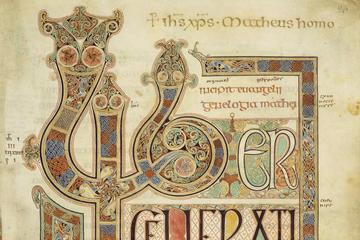 + ihs xps · Mattheus homo
incipit euangelii
genelogia mathei
LIBER
GENERATI